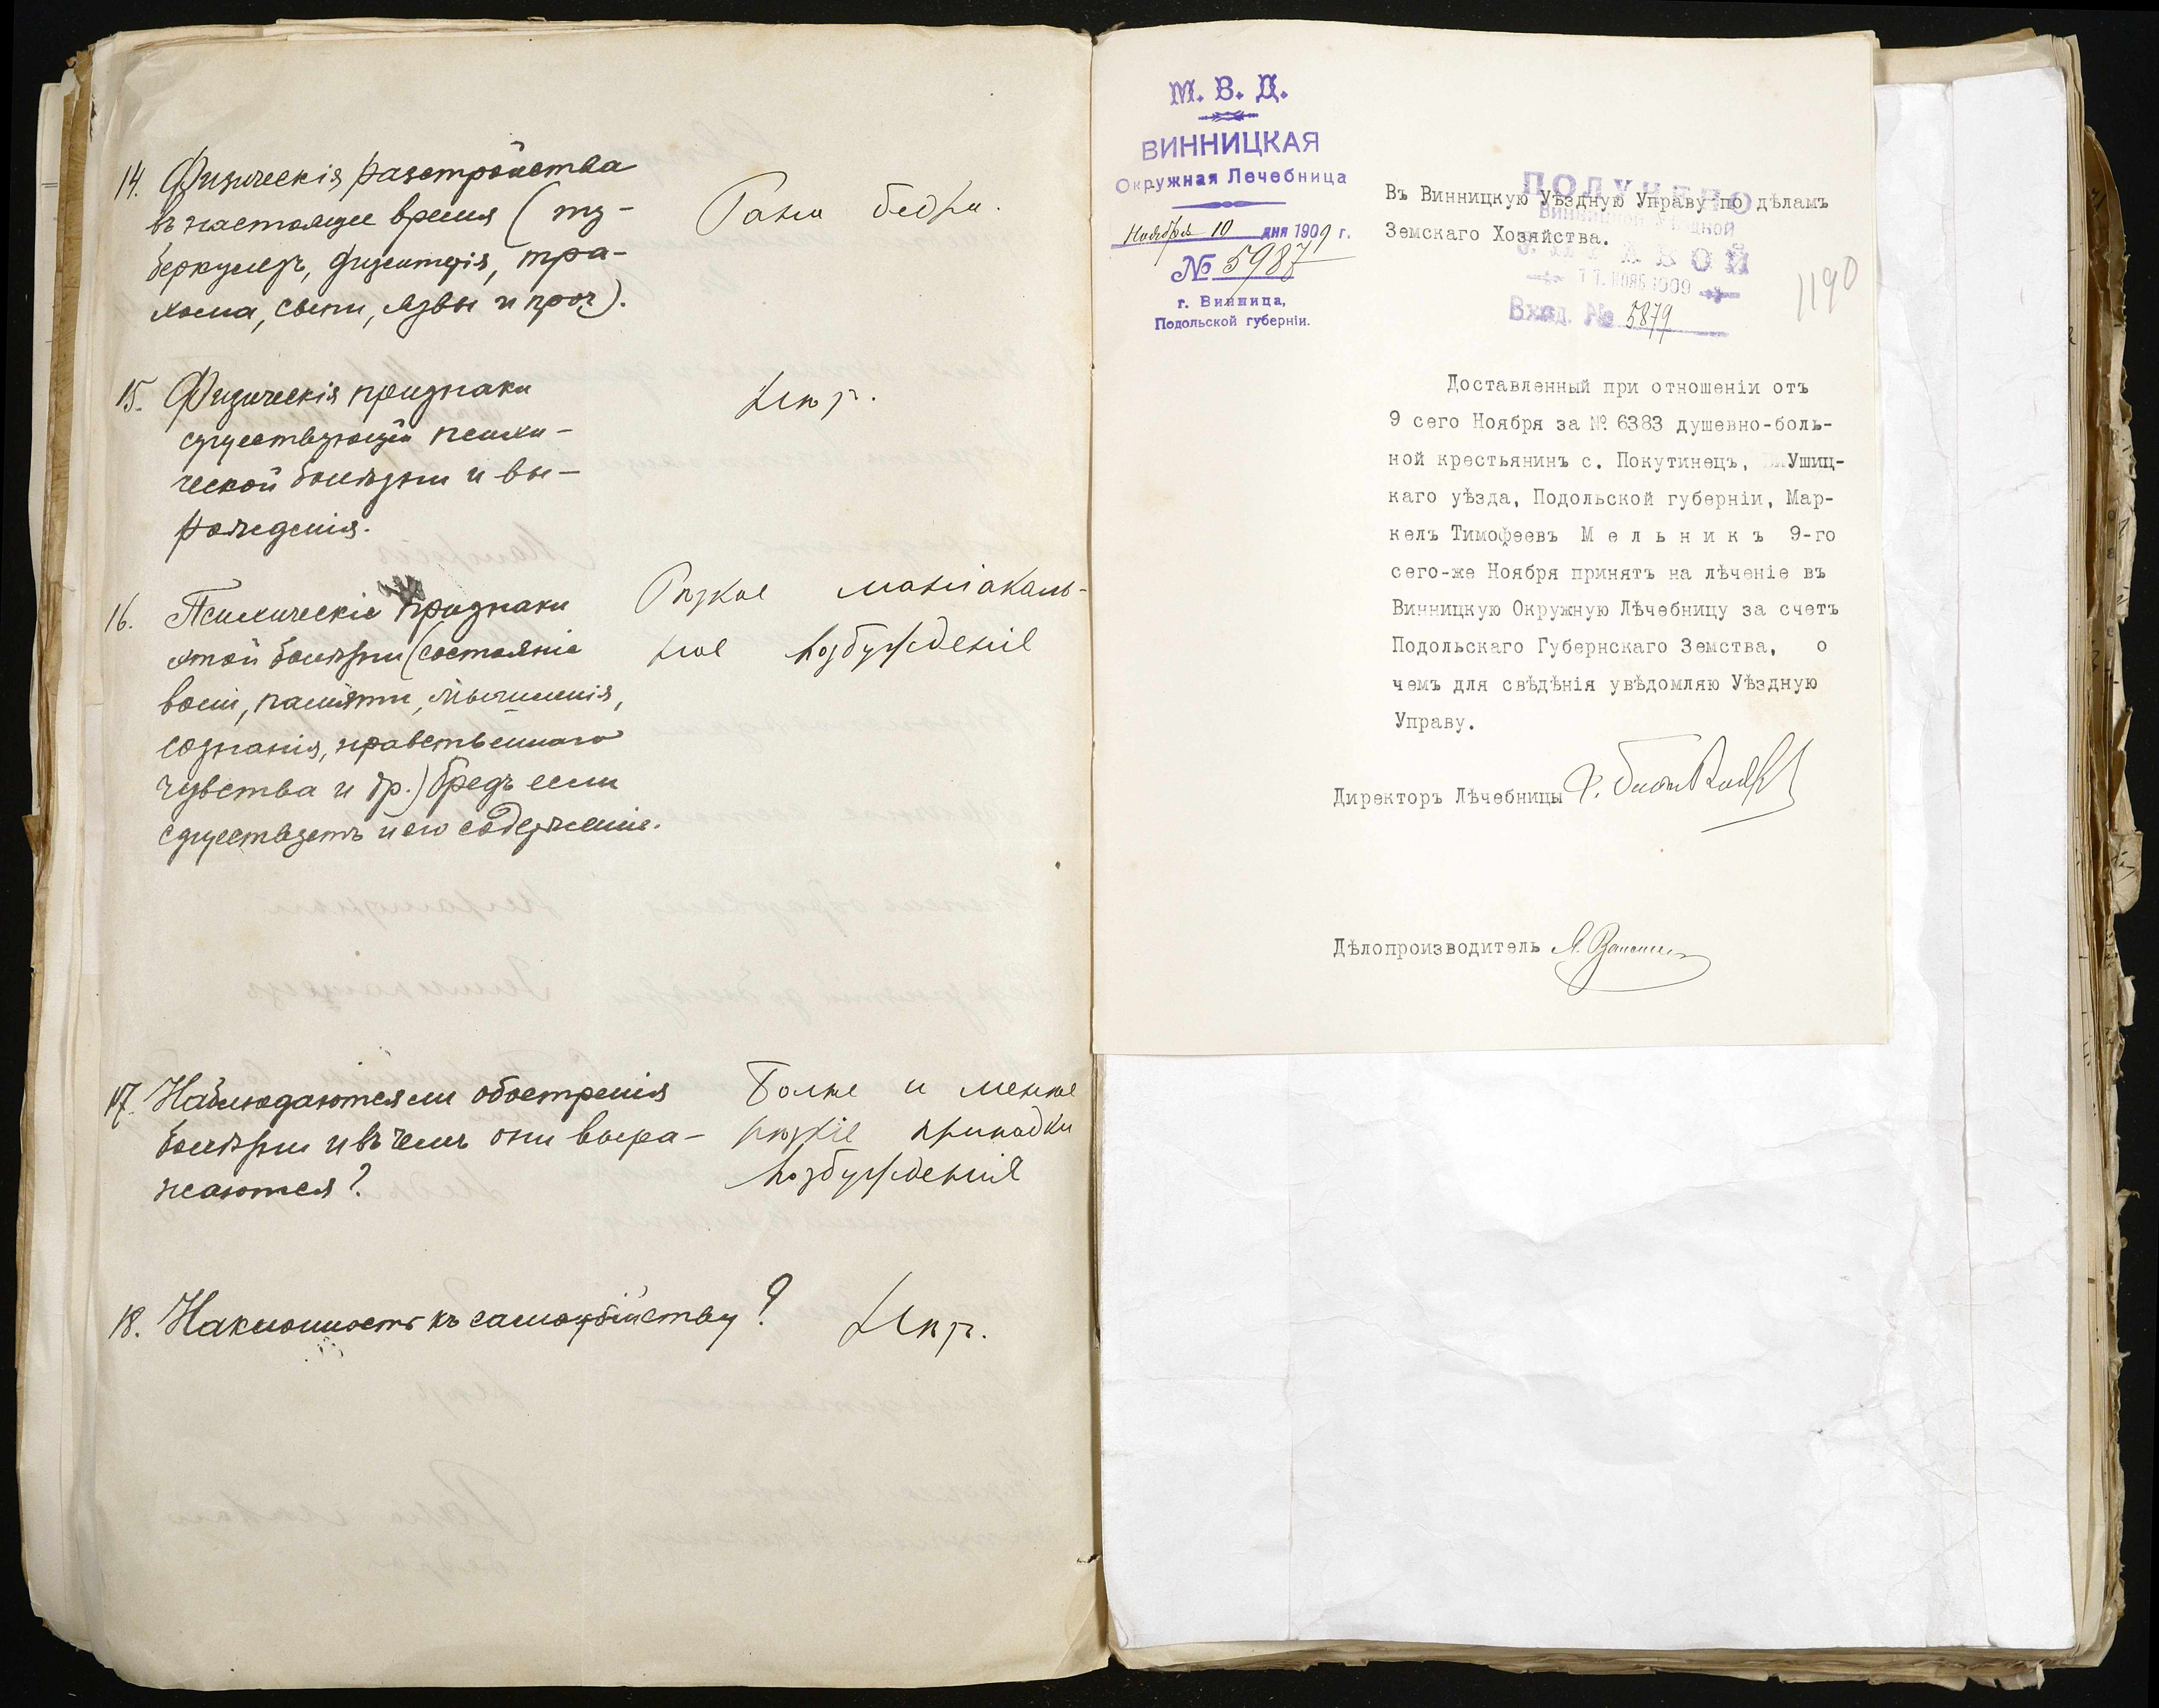 14. Физическія разстройства
въ настоящее время (ту-
беркулезъ, дизентерія, тра-
хома, сыпи, язвы и проч).
Рана бедра.
15. Физическія признаки
существующей психи-
ческой болѣзни и вы-
рожденія.
Нѣтъ.
16. Психическіе признаки
этой болѣзни (состояніе
воли, памяти, мышленія,
сознанія, нравственнаго
чувства и др.) бредъ если
существуетъ и его содержаніе.
Рѣзкое маніакаль-
ное возбужденіе
17. Наблюдаются ли обостренія
болѣзни и въ чемъ они выра-
жаются?
Болѣе и менѣе
рѣзкіе припадки
возбужденія
18. Наклонность къ самоубійству?
Нѣтъ.
М. В. Д.
ВИННИЦКАЯ
Окружная Лечебница
Ноября 10 дня 1909 г.
№ 5987
г. Винница,
Подольской губерніи.
Въ Винницкую Уѣздную Управу по дѣламъ
Земскаго Хозяйства.
ПОЛУЧЕНО
11. НОЯБ. 1909
Вход. № 5879
1190
Доставленный при отношеніи отъ
9 сего Ноября за № 6383 душевно-боль-
ной крестьянинъ с. Покутинецъ, Ушиц-
каго уѣзда, Подольской губерніи, Мар-
келъ Тимофеевъ Мельникъ 9-го
сего-же Ноября принятъ на лѣченіе въ
Винницкую Окружную Лѣчебницу за счетъ
Подольскаго Губернскаго Земства, о
чемъ для свѣдѣнія увѣдомляю Уѣздную
Управу.
Директоръ Лѣчебницы
Дѣлопроизводитель